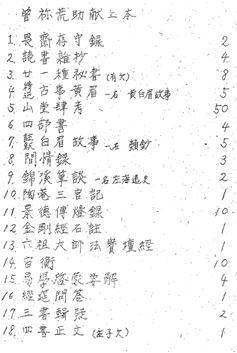 曽祢荒助献上本
1. 畏齋存守録 2
2. 読書雜抄 4
3. 廿一種秘書(有欠) 8
4. 古事黄眉 一名 黄白眉故事 5
5. 山堂肆考 50
6. 四部書 4
7. 故事 一名 類鈔 5
8. 間情録 3
9. 錦溪筆談 一名左海遺史 2
10. 陶菴三官記 1
11. 景德傳燈録 10
12. 金剛經石註 1
13. 六祖大師法寶壇經 1
14. 官衡 10
15. 易學啓蒙要解 4
16. 經筵問答 1
17. 三書輯疑 2
18. 四書正文(孟子欠) 1